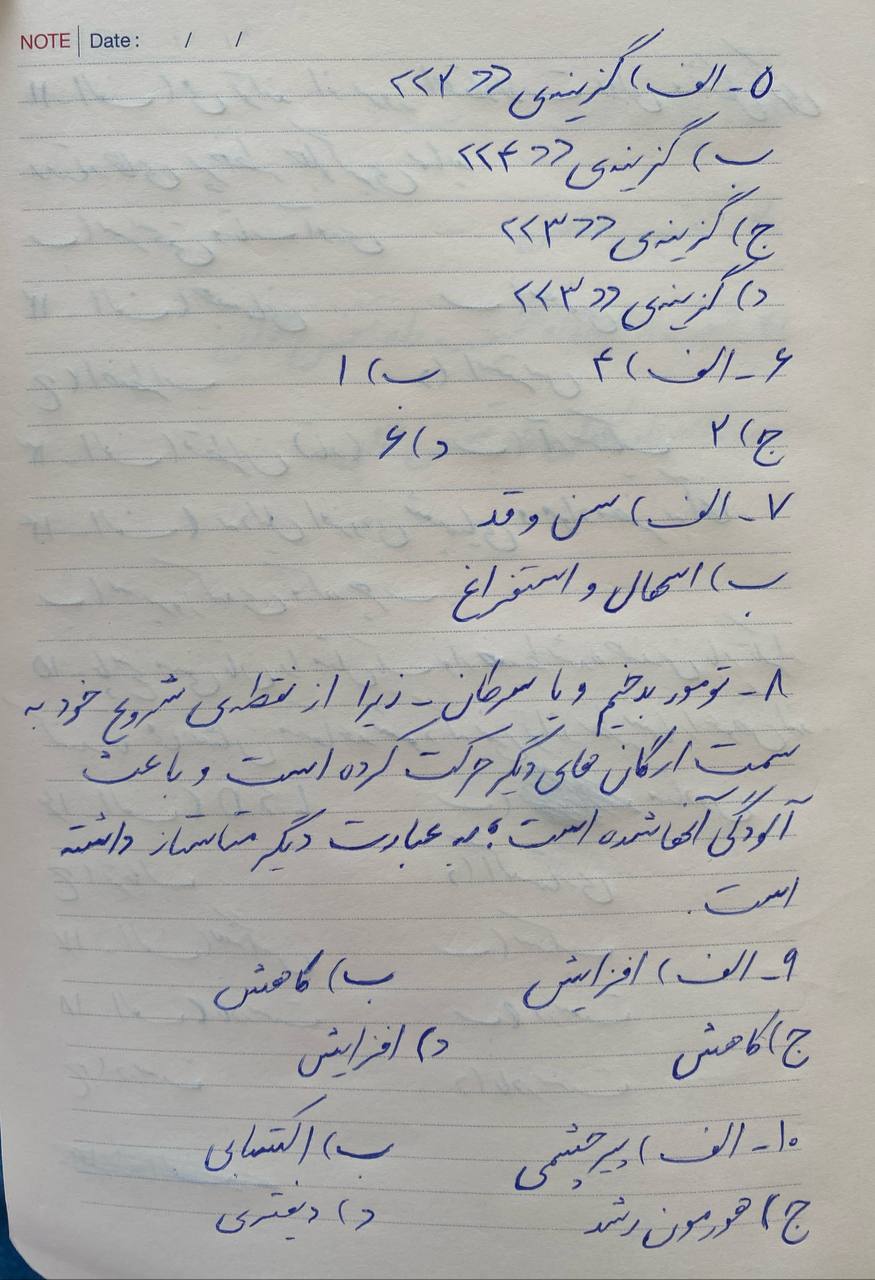 NOTE | Date: / /
۵- الف) گزینه‌ی «۲»
ب) گزینه‌ی «۴»
ج) گزینه‌ی «۳»
د) گزینه‌ی «۳»
۶- الف) ۴ ب) ۱
ج) ۲ د) ۶
۷- الف) سن و قد
ب) اسهال و استفراغ
۸- تومور بدخیم و یا سرطان - زیرا از نقطه‌ی شروع خود به
سمت ارگان های دیگر حرکت کرده است و باعث
آلودگی آنها شده است؛ به عبارت دیگر متاستاز داشته
است.
۹- الف) افزایش ب) کاهش
ج) کاهش د) افزایش
۱۰- الف) پیرچشمی ب) اکتسابی
ج) هورمون رشد د) دیفتری